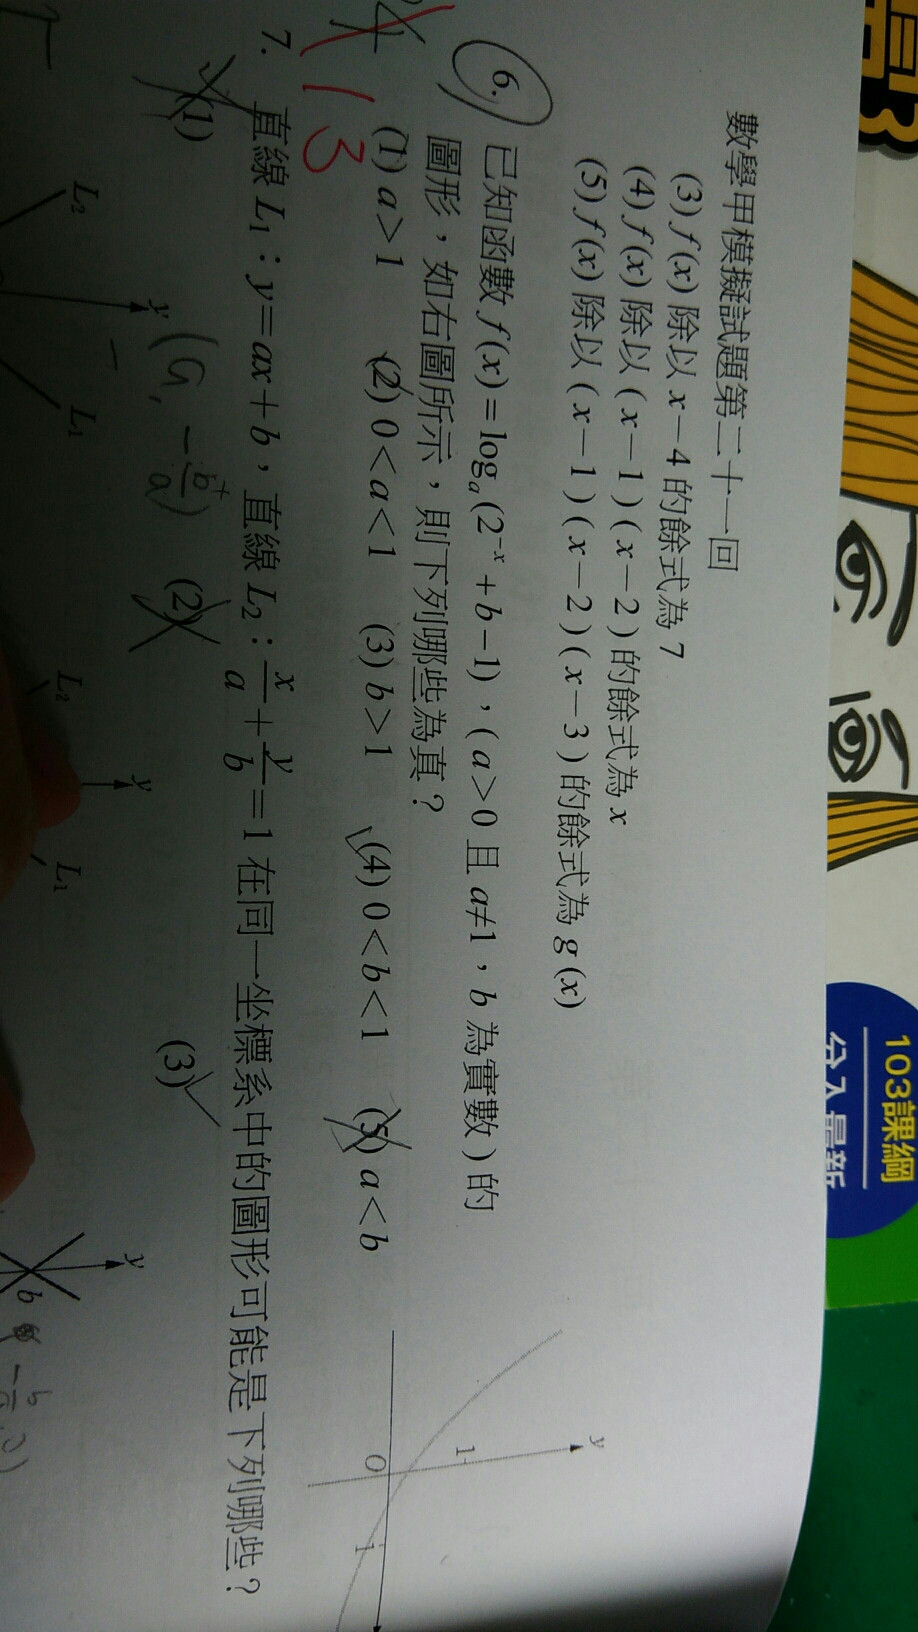 數學甲模擬試題第二十一回
(3) f(x) 除以 x-4 的餘式為 7
(4) f(x) 除以 (x-1)(x-2) 的餘式為 x
(5) f(x) 除以 (x-1)(x-2)(x-3) 的餘式為 g(x)
6. 已知函數 f(x)=logₐ(2⁻ˣ+b-1),(a>0 且 a≠1,b 為實數)的
圖形,如右圖所示,則下列哪些為真?
(1) a>1 (2) 0<a<1 (3) b>1 (4) 0<b<1 (5) a<b
y
1
0
1
13
7. 直線 L₁:y=ax+b,直線 L₂:x/a+y/b=1 在同一坐標系中的圖形可能是下列哪些?
(1) (2) (3)
y L₂ L₁
y L₂ L₁
y b
103課綱